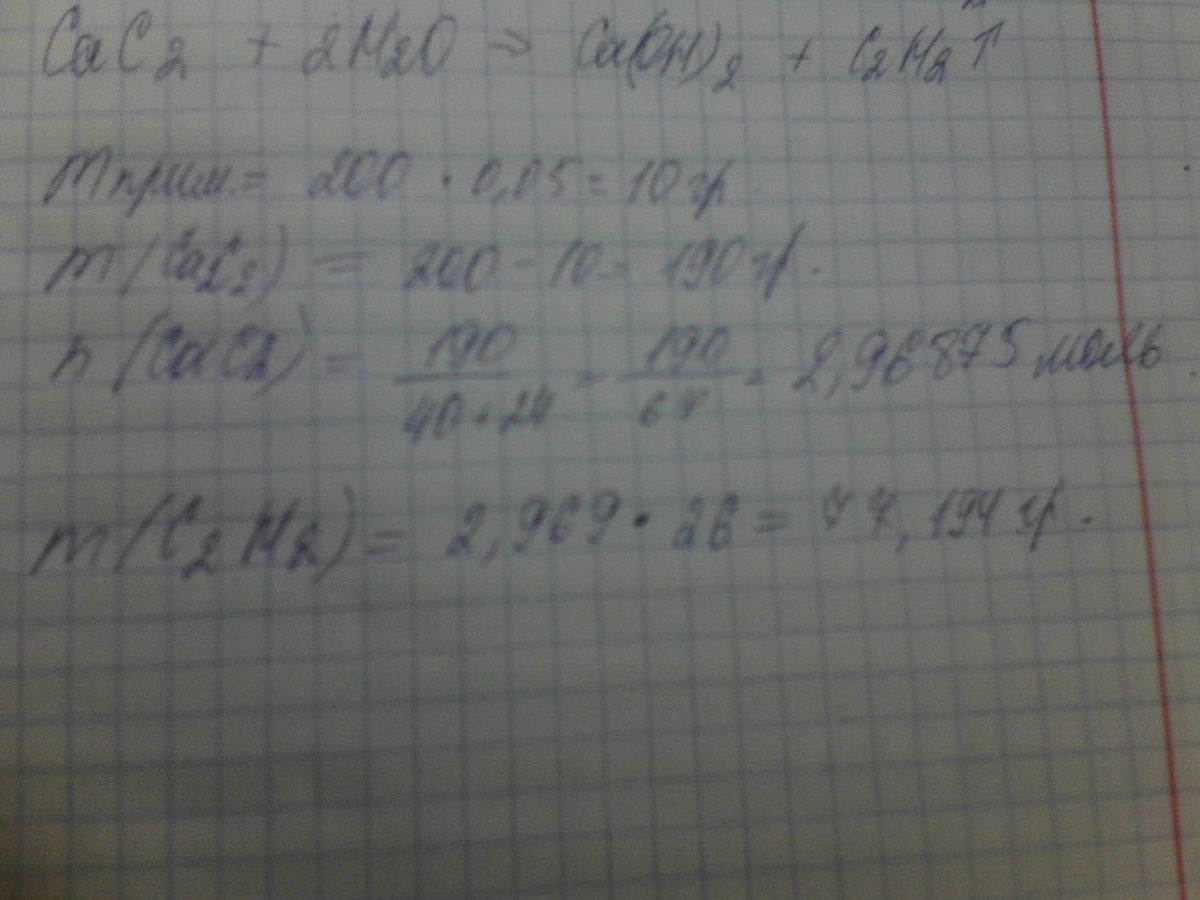 CaC2 + 2H2O => Ca(OH)2 + C2H2↑
mприм. = 200 · 0,05 = 10 гр
m(CaC2) = 200 - 10 = 190 гр.
n(CaC2) = 190/(40+24) = 190/64 = 2,96875 моль
m(C2H2) = 2,969 · 26 = 77,194 гр.